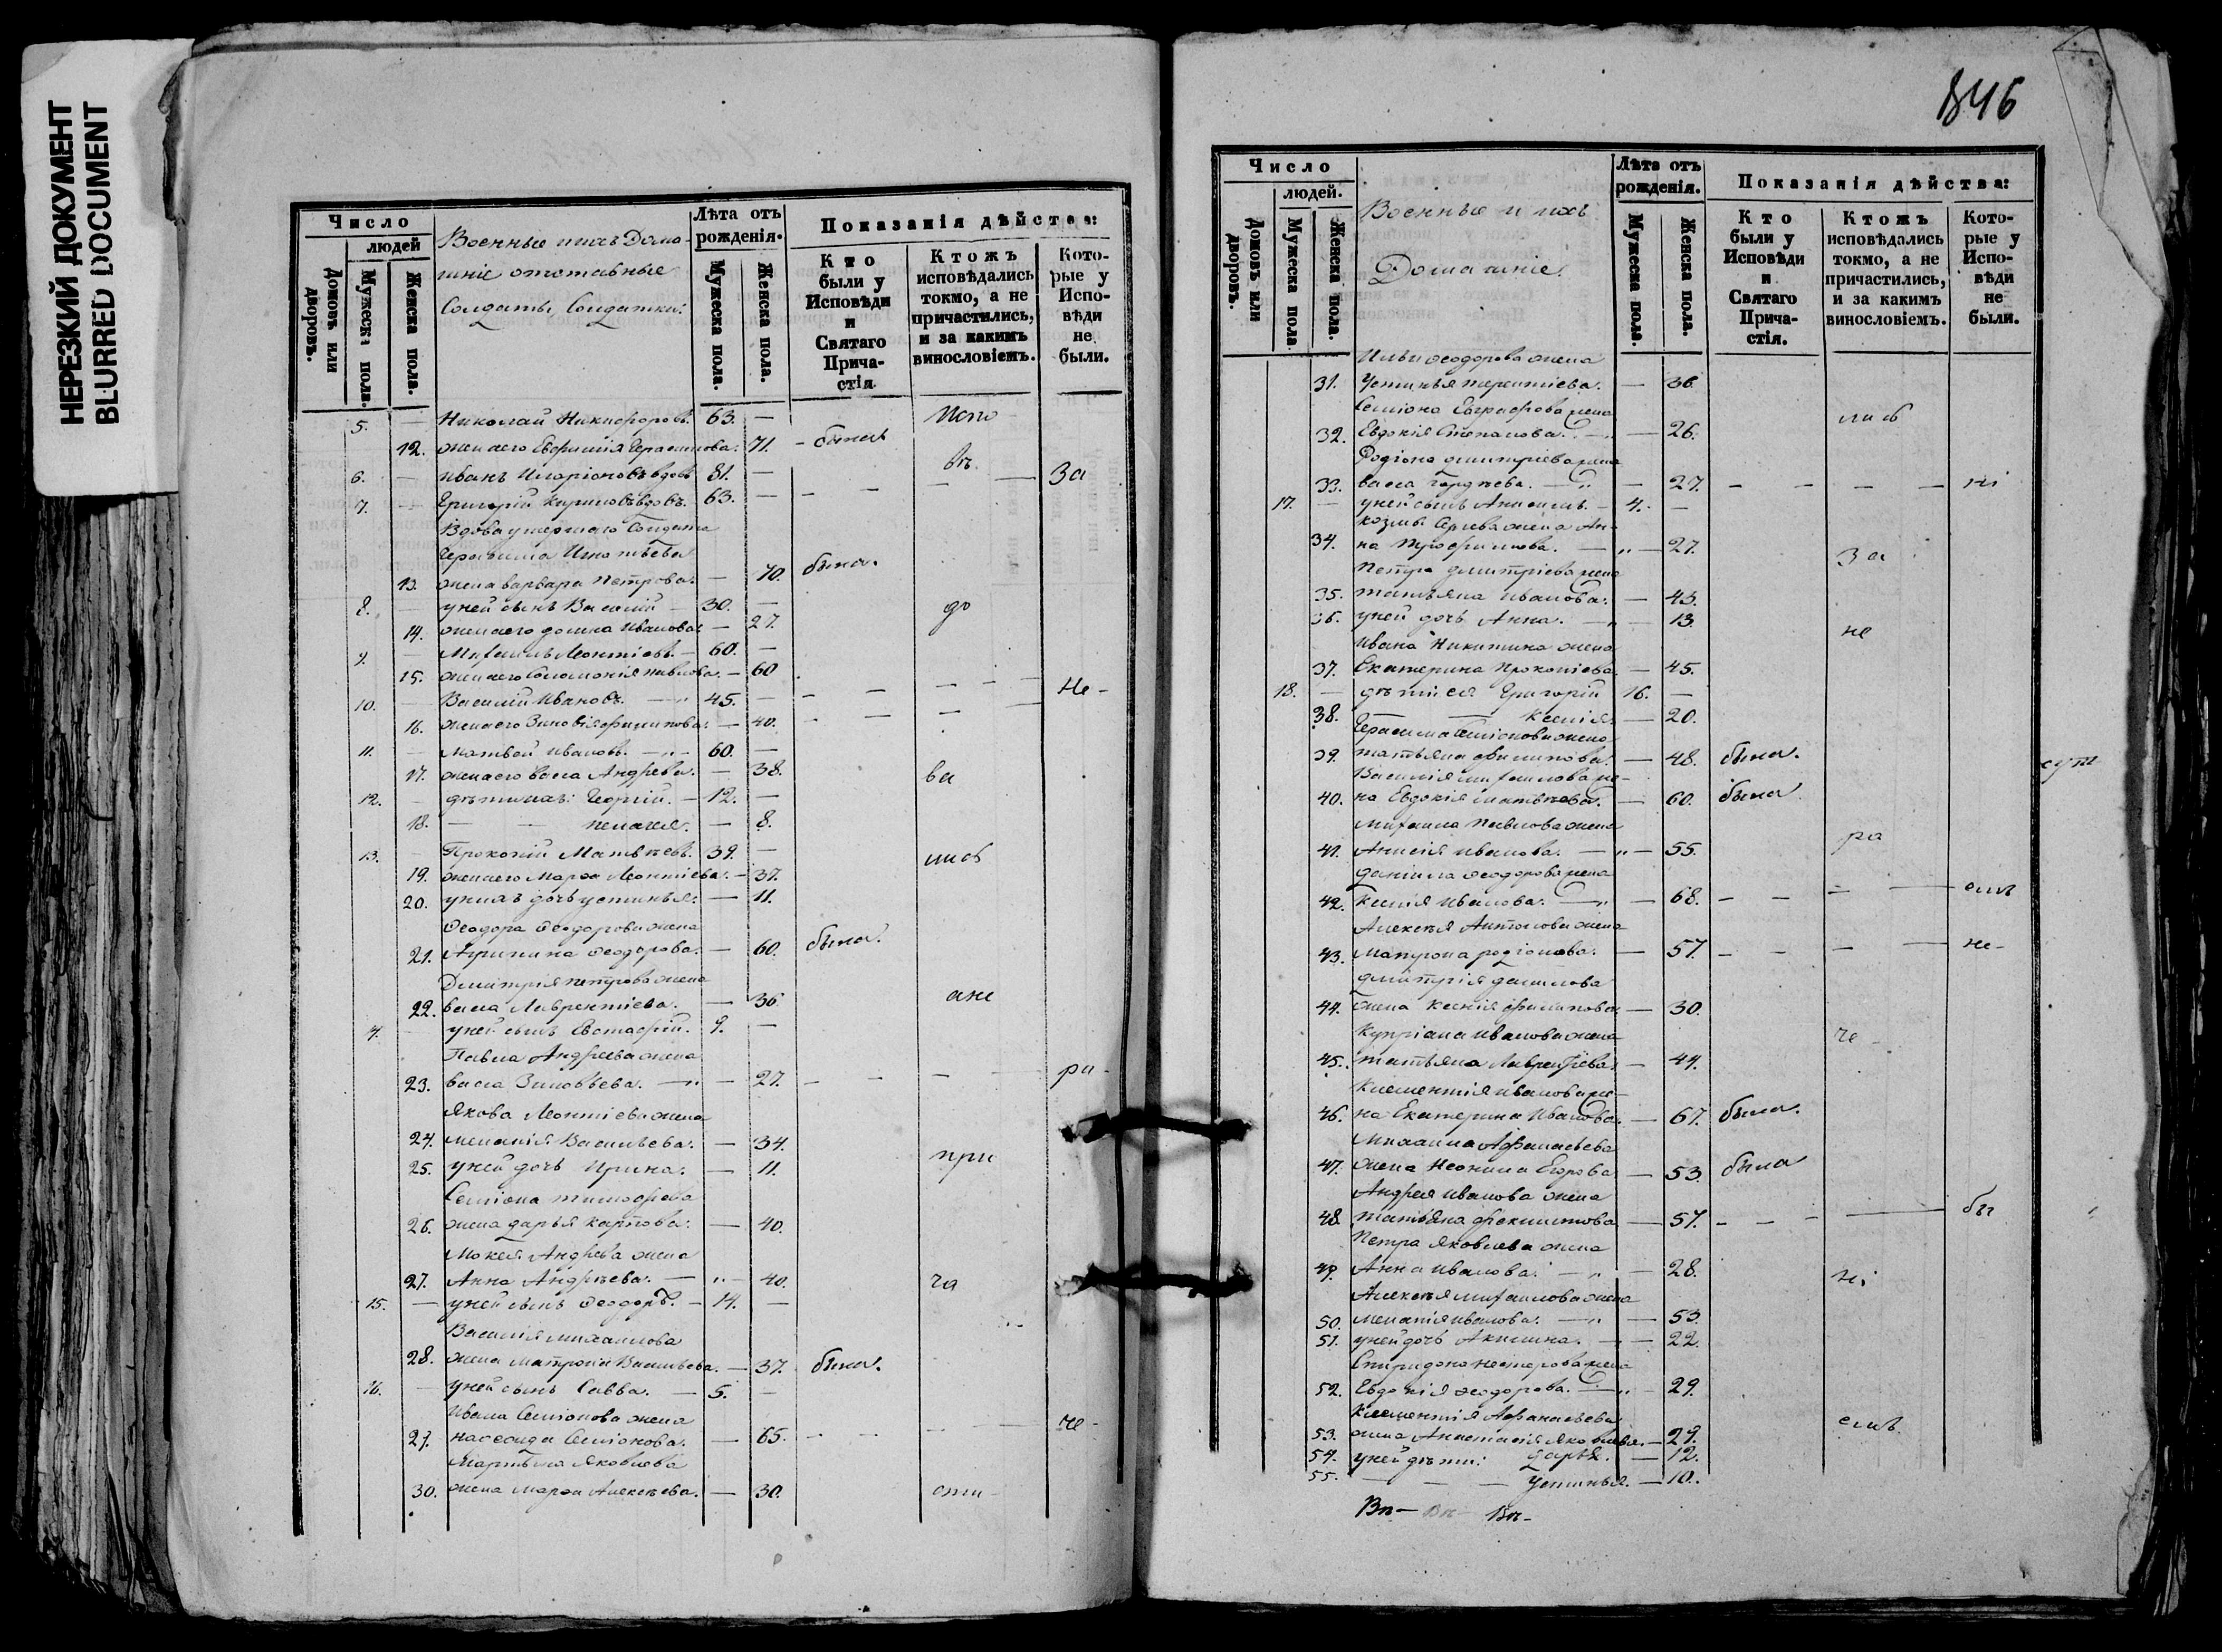 НЕРЕЗКИЙ ДОКУМЕНТ
BLURRED DOCUMENT
Число
людей
Домовъ или дворовъ.
Мужеска пола.
Женска пола.
Военные и ихъ Дома-
шніе отставные
Солдаты, Солдатки:
Лѣта отъ рожденія.
Мужеска пола.
Женска пола.
Показанія дѣйства:
Кто были у Исповѣди и Святаго Прича-стія.
Ктожъ исповѣдались токмо, а не причастились, и за какимъ винословіемъ.
Кото-рые у Испо-вѣди не были.
5. — Николай Никифоровъ. 63. — Испо
12. жена его Евфимія Герасимова. 71. — была
6. — Иванъ Иларіоновъ вдовъ 81. — вѣ — За
7. — Григорій Кириловъ вдовъ. 63. —
Вдова умершаго Солдата
Герасима Игнатьева
13. жена варвара Петрова. — 70. была.
8. — у ней сынъ Василій — 30. — до
14. жена его домна Иванова: — 27.
9. — Михаилъ Леонтіевъ. — 60. —
15. жена его Соломонія павлова. — 60
10. Василій Ивановъ. — 45. — Не-
16. жена его Зиновія филипова: — 40.
11. — Матвей Ивановъ. — 60. —
17. жена его Васа Андреева. — 38. ва
12. — дѣти ихъ: Георгій. — 12. —
18. — — пелагея. — 8.
13. — Прокопій Матвѣевъ. 39. — лись
19. жена его Марѳа Леонтіева: — 37.
20. у нихъ дочь устинья: — 11.
Ѳеодора Ѳеодорова жена
21. Агрипина Ѳеодорова. — 60. была.
Дмитрія петрова жена
22. васа Лаврентіева. — 36. а не
— у ней сынъ Евстафій. 9. —
Павла Андреева жена
23. васа Зиновьева. — 27. — ра-
Якова Леонтіева жена
24. меланія Васильева. — 34.
25. у ней дочь Ирина. — 11. при
Семіона тимофеева
26. жена дарья карпова: — 40.
Мокея Андреева жена
27. Анна Андреева: — 40. ча
15. — у ней сынъ Ѳеодоръ. — 14. —
Василія михаилова
28. жена матрона Васильева. — 37. была.
16. — у ней сынъ Савва. — 5. —
Ивана Семіонова жена
29. Семіонова. — 65. — че-
Мартына Яковлева
30. жена марѳа Алексѣева. — 30.
846
Число
людей.
Домовъ или дворовъ.
Мужеска пола.
Женска пола.
Военные и ихъ
Домашніе.
Лѣта отъ рожденія.
Мужеска пола.
Женска пола.
Показанія дѣйства:
Кто были у Исповѣди и Святаго Прича-стія.
Ктожъ исповѣдались токмо, а не причастились, и за какимъ винословіемъ.
Кото-рые у Испо-вѣди не были.
Ильи Ѳеодорова жена
31. Устинья терентіева. — 36.
Семіона Евграфова жена
32. Евдокія Степанова. — 26. лись
Родіона дмитріева жена
33. васа Гордѣева. — 27. — ні
17. — у ней сынъ — 4. —
жена Ан-
34. на Трофимова. — 27. за
Петра дмитріева жена
35. татьяна иванова: — 43.
36. у ней дочь Анна. — 13. не
Ивана Никитина жена
37. Екатерина Прокопіева — 45.
18. — дѣти ея Григорій 16. —
38. — — Ксенія. — 20.
Герасима Семіонова жена
39. татьяна филипова. — 48. была.
Василія михаилова же-
40. на Евдокія матвѣева. — 60. была
михаила павлова жена
41. Анисія Иванова. — 55. ра
даніила Ѳеодорова жена
42. Ксенія иванова. — 68. —
Алексѣя Антонова жена
43. Матрона родіонова. — 57. — не-
дмитрія данилова
44. жена Ксенія филипова — 30.
Купріана иванова жена
45. татьяна Лаврентіева. — 44. че-
Клементія иванова же-
46. на Екатерина Иванова. — 67. была.
Михаила Афанасьева
47. жена Неонила Егорова — 53. была
Андрея иванова жена
48. татьяна — 57. — бы
Петра Яковлева жена
49. Анна иванова: — 28. ні
Алексѣя михаилова жена
50. меланія иванова. — 53.
51. у ней дочь Акилина. — 22.
Спиридона нестерова жена
52. Евдокія Ѳеодорова. — 29.
Клементія Афанасьева
53. жена Анастасія Яковлева. — 29. емъ
54. у ней дѣти: дарья. — 12.
55. — — Устинья. — 10.